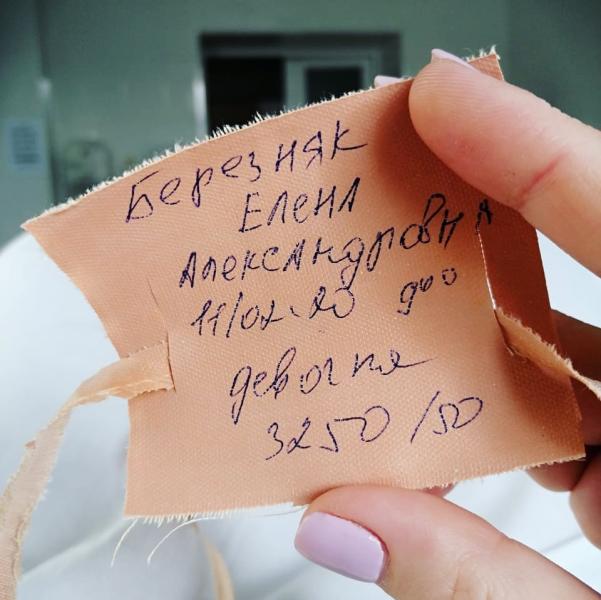 Березняк
Елена
Александровна
11/02.20 9⁰⁰
девочка
3250/50